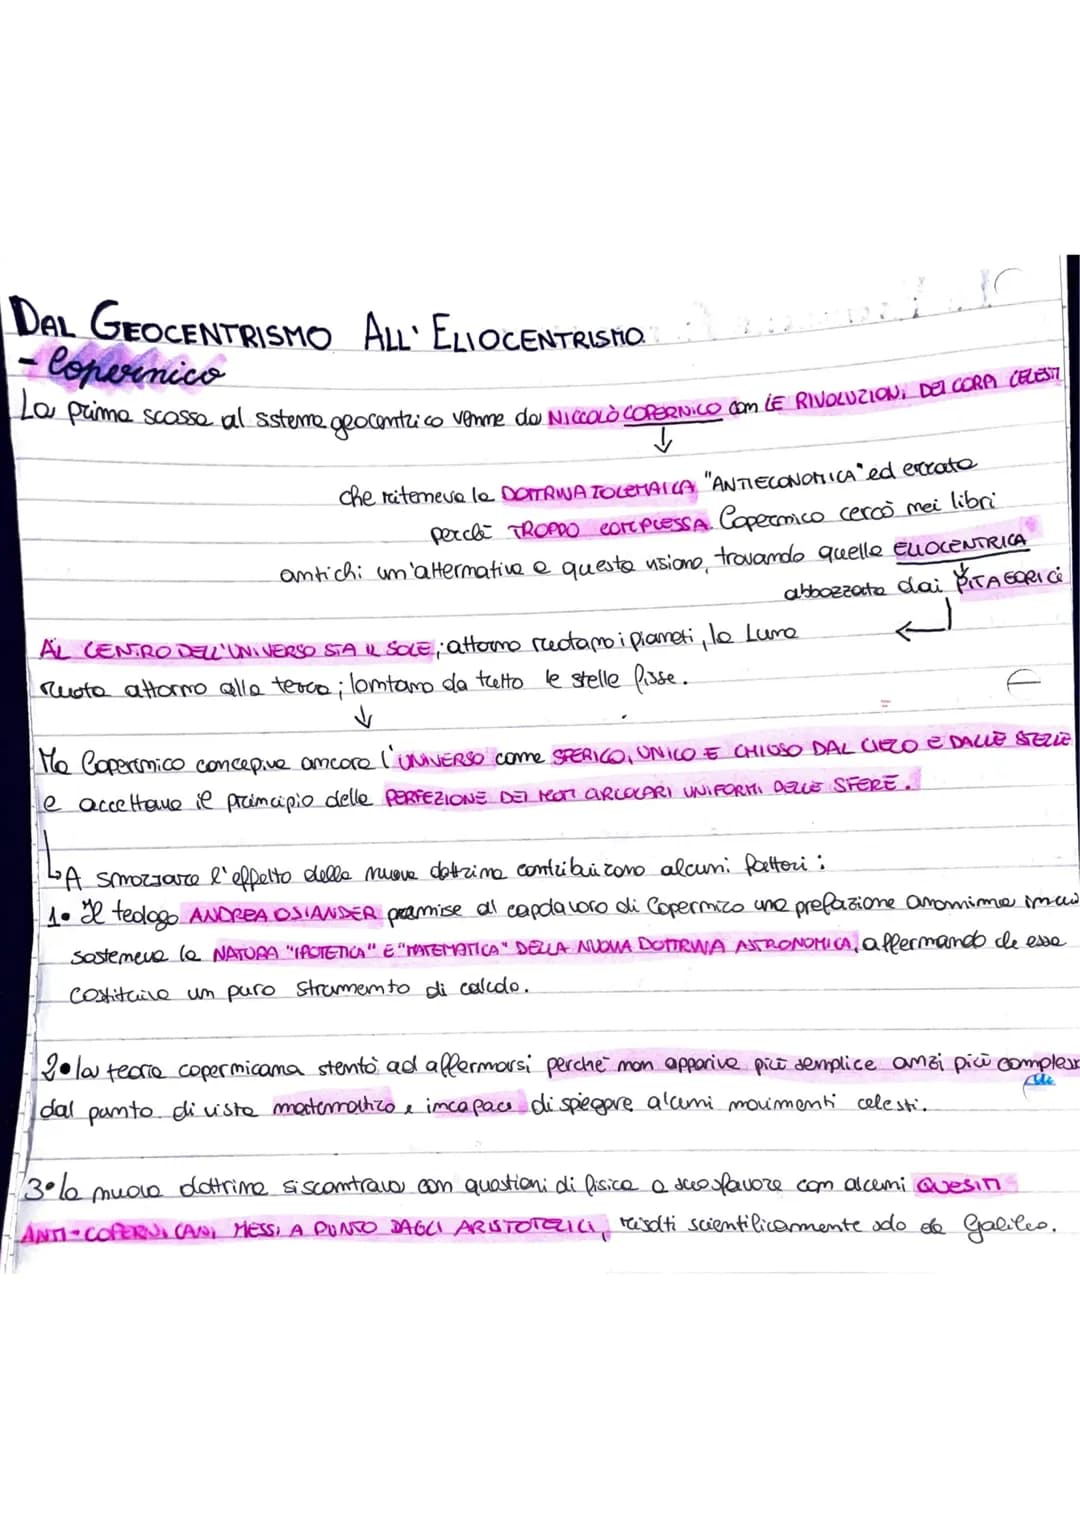 DAL GEOCENTRISMO ALL' ELIOCENTRISMO
- Copernico
La prima scossa al sistema geocentrico venne da NICCOLÒ COPERNICO con LE RIVOLUZIONI DEI CORPI CELESTI
↓
che riteneva la DOTTRINA TOLEMAICA "ANTIECONOMICA" ed errata
perché TROPPO COMPLESSA. Copernico cercò nei libri
antichi un'alternativa a questa visione, trovando quella ELIOCENTRICA
abbozzata dai PITAGORICI
AL CENTRO DELL'UNIVERSO STA IL SOLE; attorno ruotano i pianeti, la Luna
ruota attorno alla terra; lontano da tutto le stelle fisse.
↓
Ma Copernico concepiva ancora l'UNIVERSO come SFERICO, UNICO E CHIUSO DAL CIELO E DALLE STELLE
e accettava il principio della PERFEZIONE DEI MOTI CIRCOLARI UNIFORMI DELLE SFERE.
↳ A smorzare l'effetto della nuova dottrina contribuirono alcuni fattori:
1• Il teologo ANDREA OSIANDER premise al capolavoro di Copernico una prefazione anonima in cui
sosteneva la NATURA "IPOTETICA" E "MATEMATICA" DELLA NUOVA DOTTRINA ASTRONOMICA, affermando che essa
costituiva un puro strumento di calcolo.
2• la teoria copernicana stentò ad affermarsi perché non appariva più semplice anzi più complessa
dal punto di vista matematico e incapace di spiegare alcuni movimenti celesti.
3• la nuova dottrina si scontrava con questioni di fisica a suo sfavore con alcuni QUESITI
ANTI-COPERNICANI MESSI A PUNTO DAGLI ARISTOTELICI, risolti scientificamente solo da Galileo.